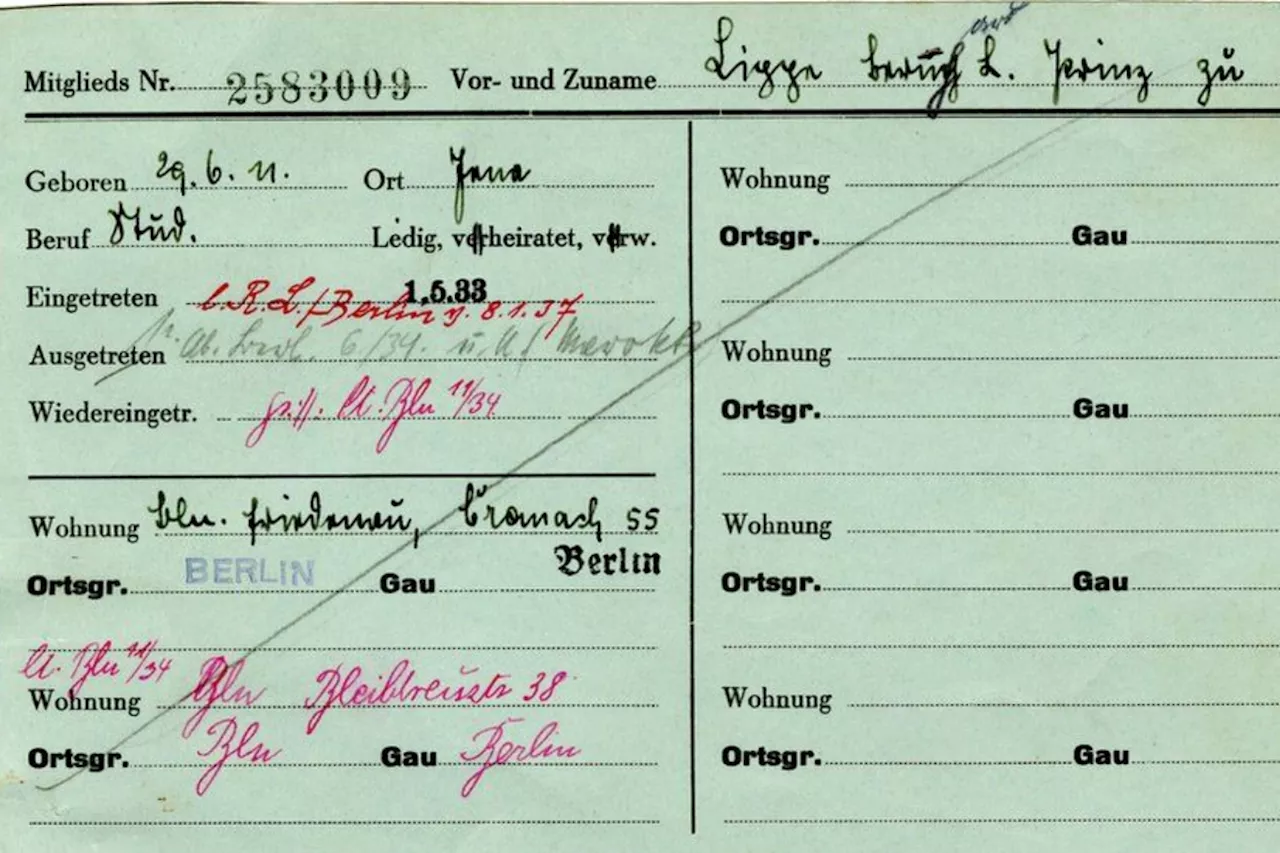 Mitglieds Nr. 2583009 Vor- und Zuname Lippe L. Prinz zu
Geboren 29.6.11. Ort Jena
Beruf Stud. Ledig, verheiratet, verw.
Eingetreten 1.5.33
R.L./Berlin v. 8.1.37
Ausgetreten 6/34. u.
Wiedereingetr. lt. Bln 11/34
Wohnung Bln. Friedenau, Cranach 55
Ortsgr. BERLIN Gau Berlin
lt. Bln 11/34
Wohnung Bln Bleibtreustr 38
Ortsgr. Bln Gau Berlin
Wohnung
Ortsgr. Gau
Wohnung
Ortsgr. Gau
Wohnung
Ortsgr. Gau
Wohnung
Ortsgr. Gau